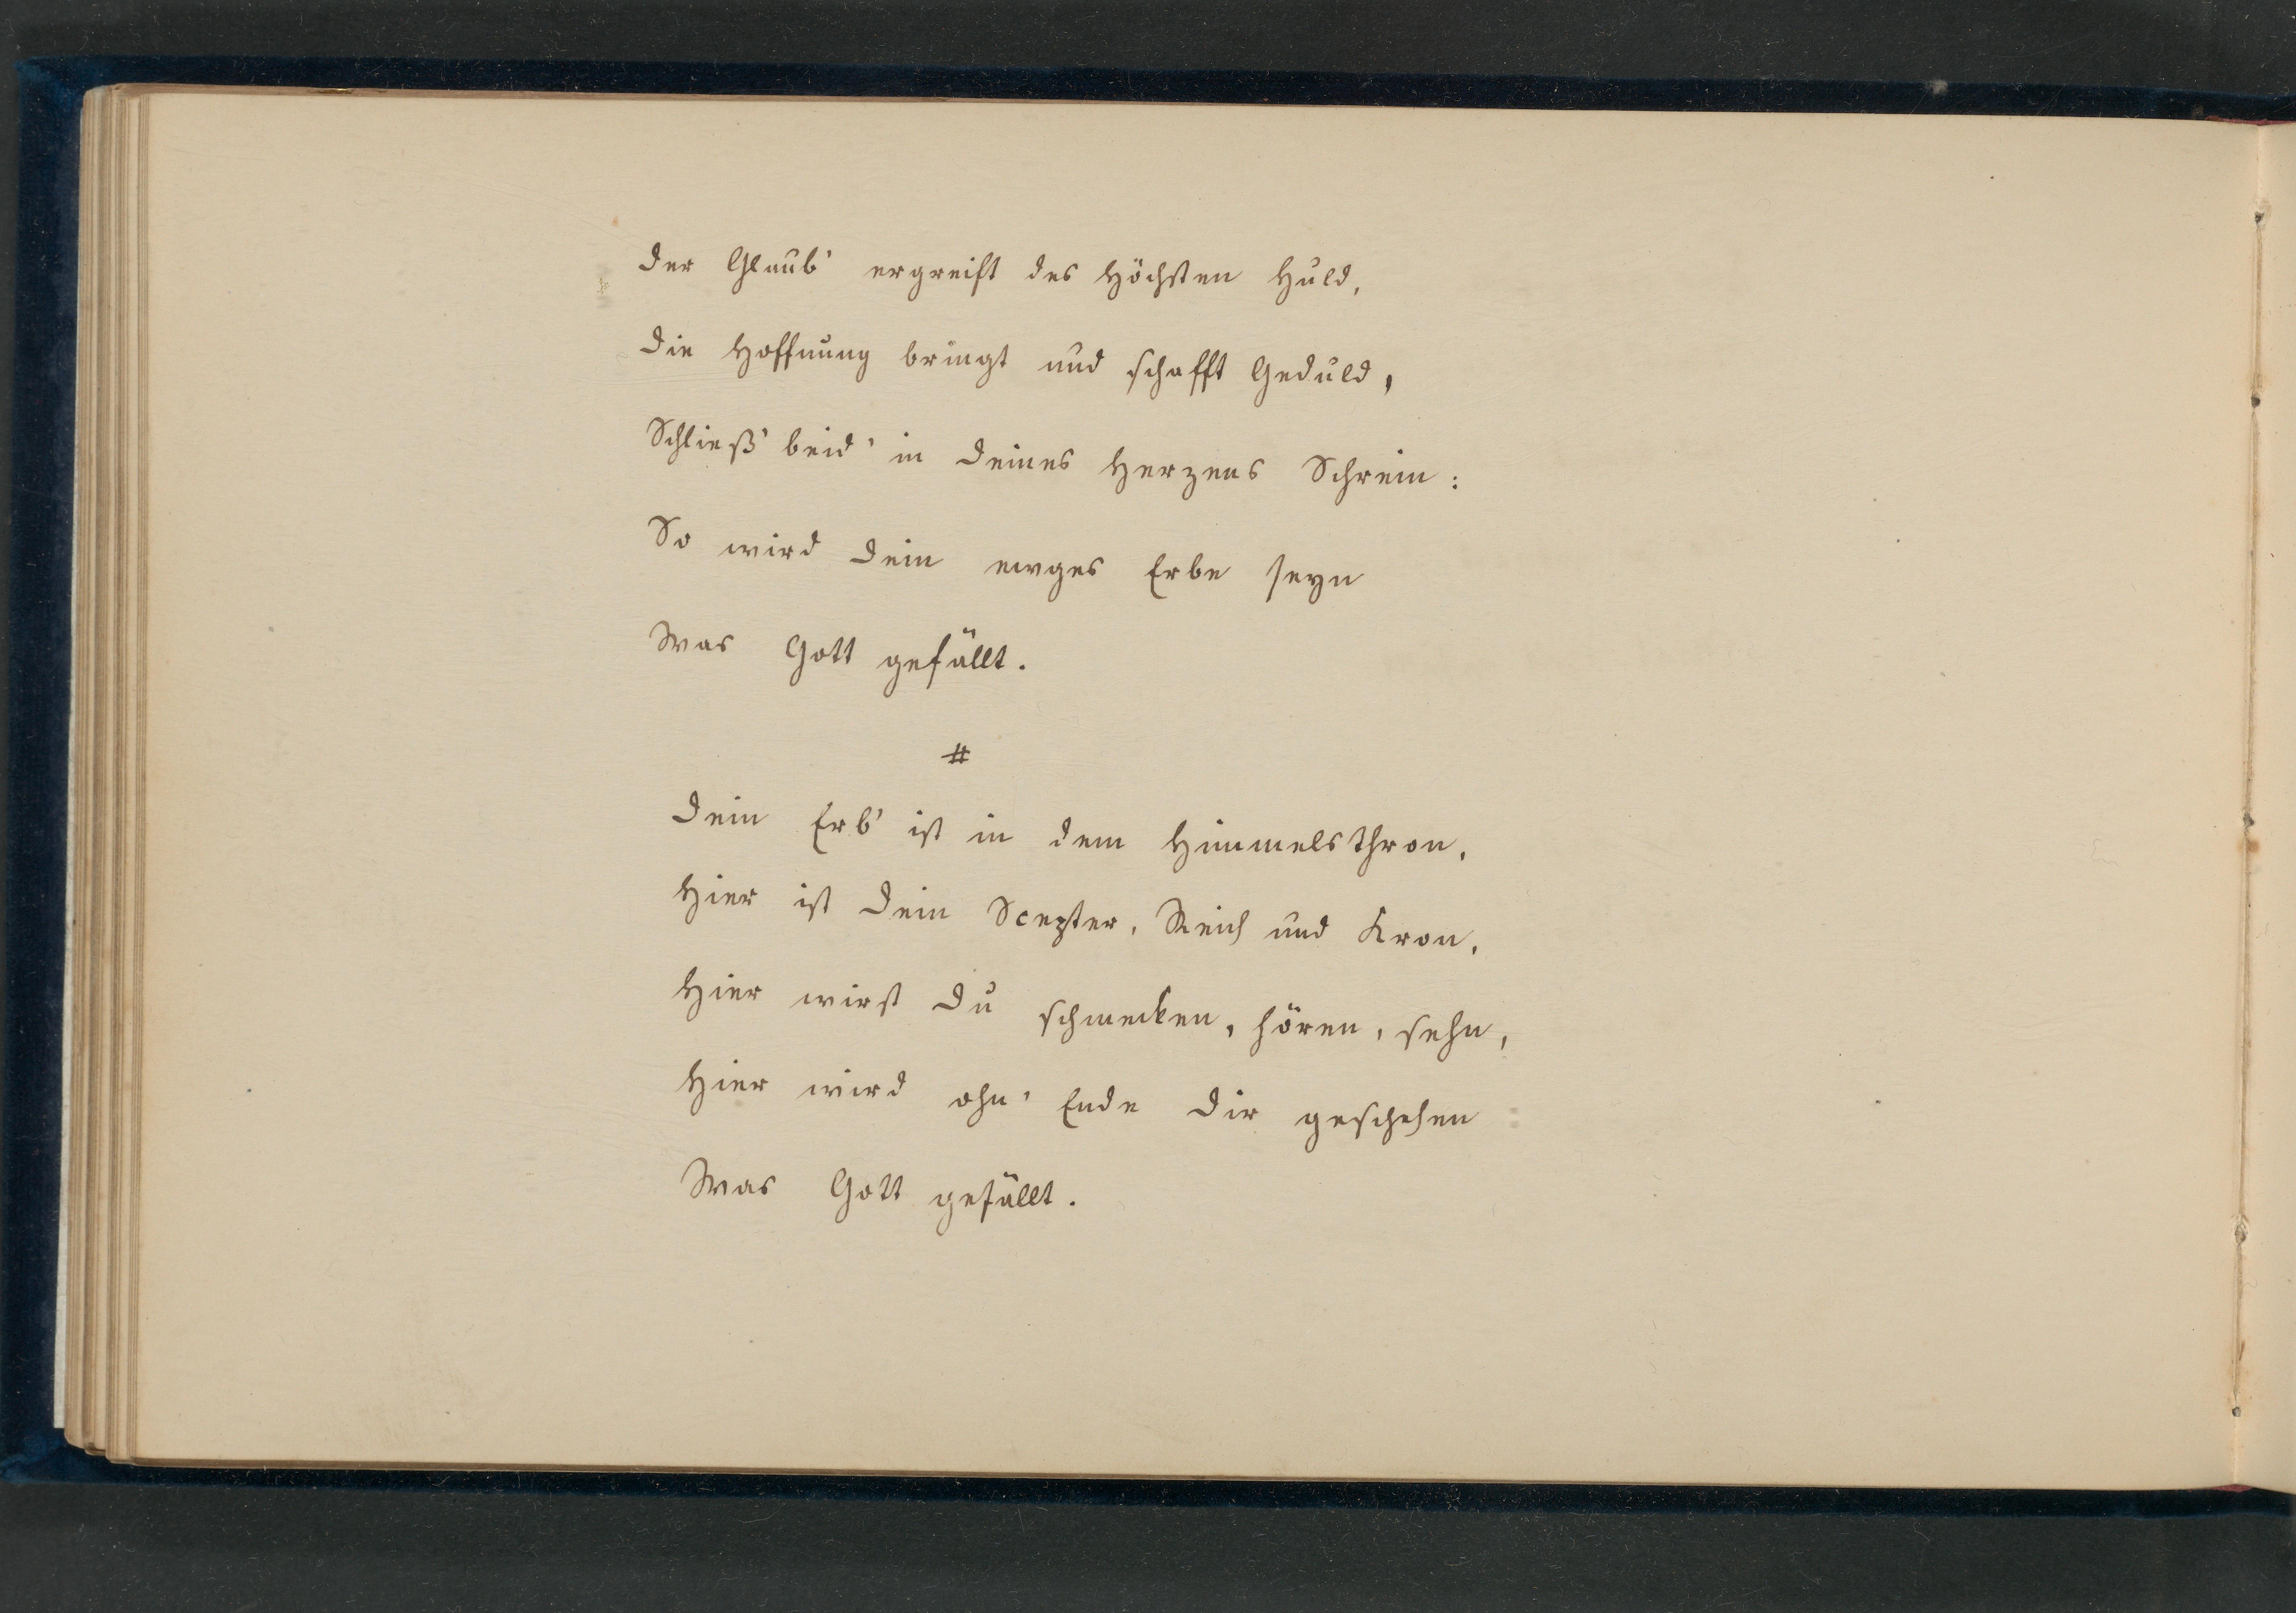 Der Glaub' ergreift des Höchsten Huld,
Die Hoffnung bringt und schafft Geduld,
Schließ' beid' in Deines Herzens Schrein:
So wird Dein ewges Erbe seyn
Was Gott gefällt.
#
Dein Erb' ist in dem Himmelsthron,
Hier ist Dein Scepter, Reich und Kron,
Hier wirst Du schmecken, hören, sehn,
Hier wird ohn' Ende Dir geschehen
Was Gott gefällt.